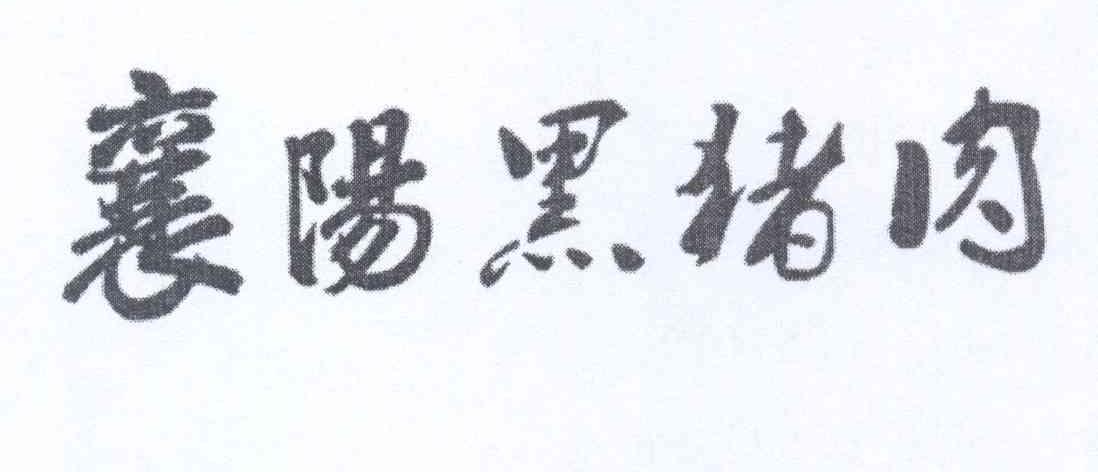 襄陽黑猪肉